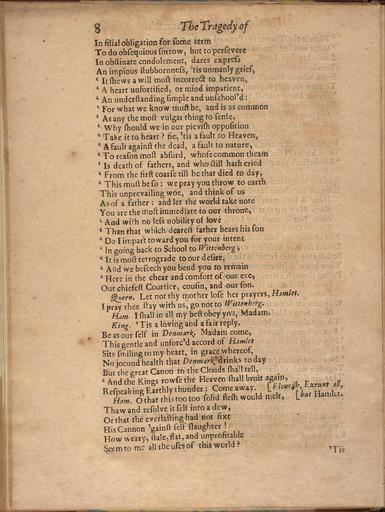 8 The Tragedy of
In filial obligation for some term
To do obsequious sorrow, but to persevere
In obstinate condolement, dares express
An impious stubborness, 'tis unmanly grief,
‘ It shews a will most incorrect to heaven,
‘ A heart unfortified, or mind impatient,
‘ An understanding simple and unschool'd:
‘ For what we know must be, and is as common
‘ As any the most vulgar thing to sense,
‘ Why should we in our pievish opposition
‘ Take it to heart? fie, 'tis a fault to Heaven,
‘ A fault against the dead, a fault to nature,
‘ To reason most absurd, whose common theam
‘ Is death of fathers, and who still hath cried
‘ From the first coarse till he that died to day,
‘ This must be so: we pray you throw to earth
This unprevailing woe, and think of us
As of a father: and let the world take note
You are the most immediate to our throne,
‘ And with no less nobility of love
‘ Than that which dearest father bears his son
‘ Do I impart toward you for your intent
‘ In going back to School to Wittenberg,
‘ It is most retrograde to our desire,
‘ And we beseech you bend you to remain
‘ Here in the chear and comfort of our eye,
Our chiefest Courtier, cousin, and our son.
Queen. Let not thy mother lose her prayers, Hamlet.
I pray thee stay with us, go not to Wittenberg.
Ham. I shall in all my best obey you, Madam.
King. 'Tis a loving and a fair reply,
Be as our self in Denmark, Madam come,
This gentle and unforc'd accord of Hamlet
Sits smiling to my heart, in grace whereof,
No jocund health that Denmark drinks to day
But the great Canon to the Clouds shall tell,
‘ And the Kings rowse the Heaven shall bruit again,
Respeaking Earthly thunder: Come away. [Flourish, Exeunt all,
Ham. O that this too too solid flesh would melt, [but Hamlet.
Thaw and resolve it self into a dew,
Or that the everlasting had not fixt
His Cannon 'gainst self slaughter!
How weary, stale, flat, and unprofitable
Seem to me all the uses of this world?
'Tis